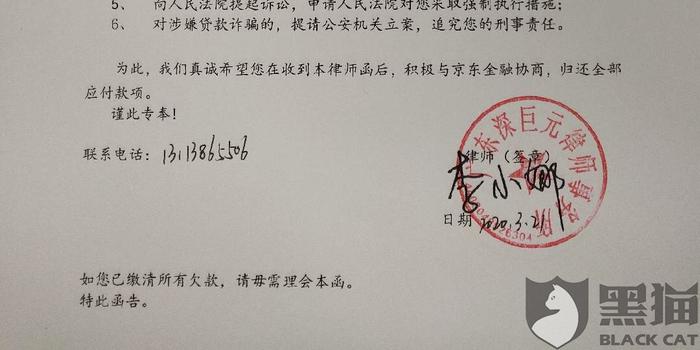 5、 向人民法院提起诉讼,申请人民法院对您采取强制执行措施;
6、 对涉嫌贷款诈骗的,提请公安机关立案,追究您的刑事责任。
为此,我们真诚希望您在收到本律师函后,积极与京东金融协商,归还全部
应付款项。
谨此专奉!
联系电话:13113865506
广东深巨元律师事务所
律师(签章)
李小娜
日期 2020.3.21
如您已缴清所有欠款,请毋需理会本函。
特此函告。
黑猫
BLACK CAT